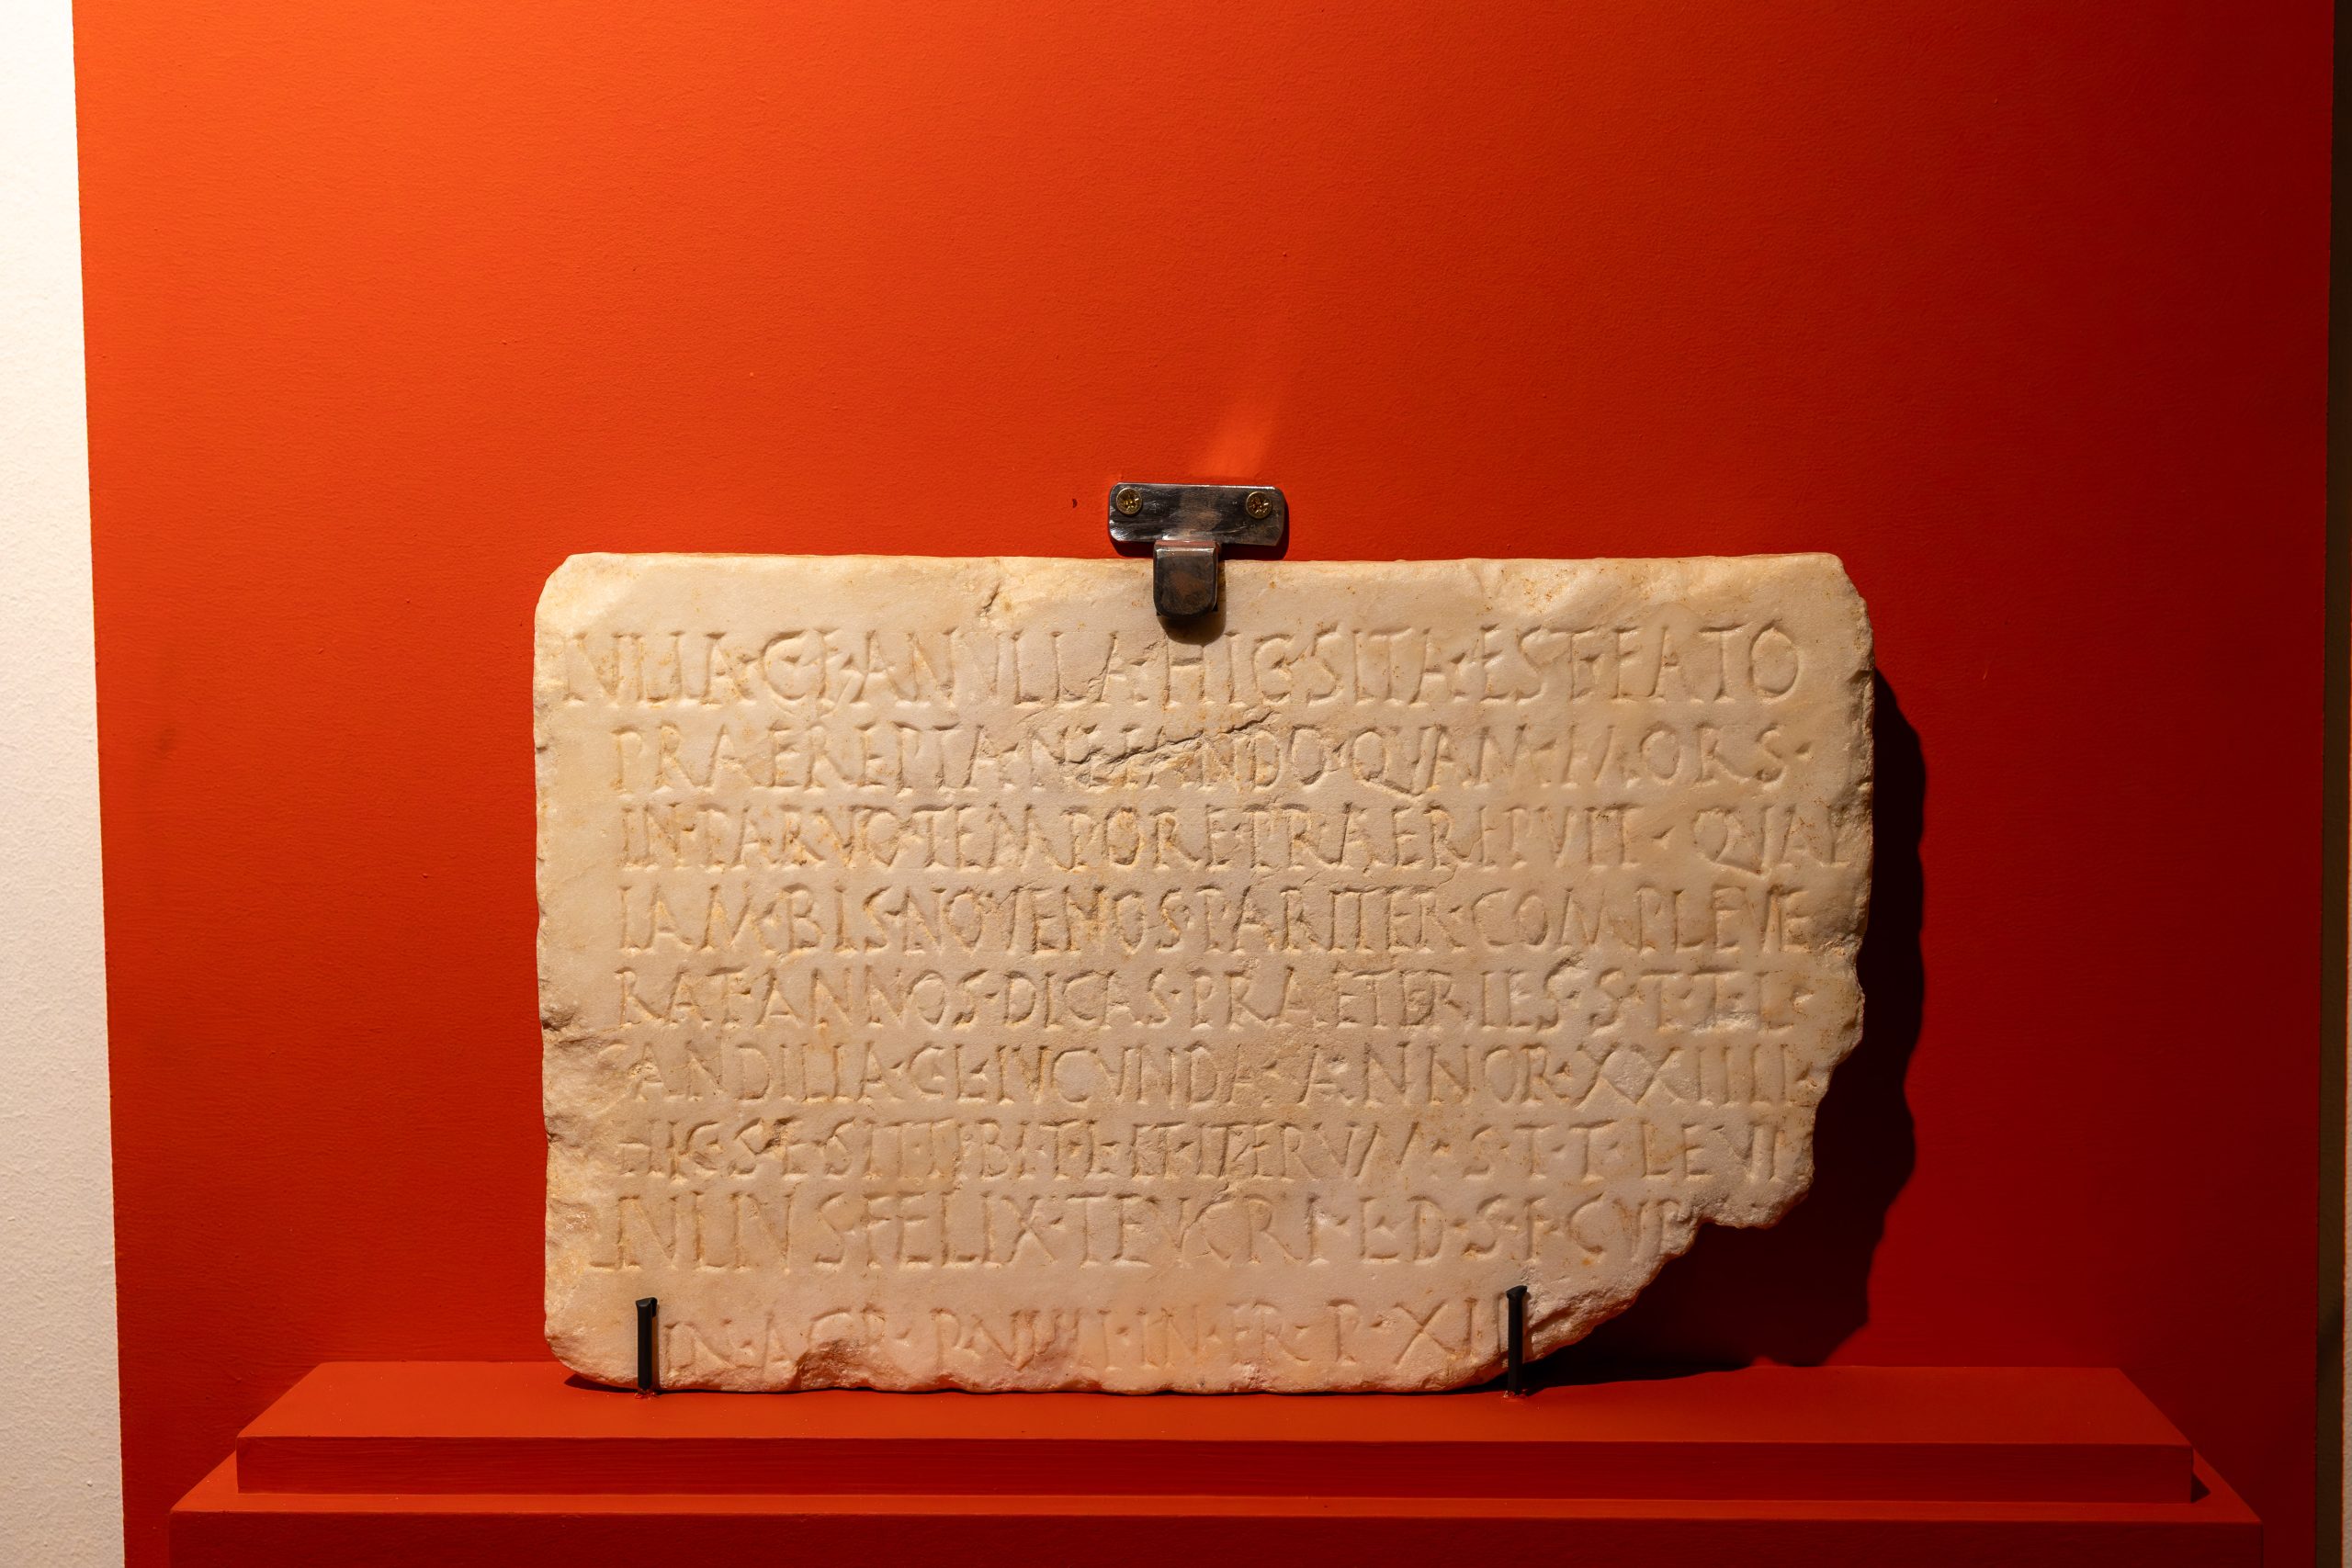 IVLIA·C·F·ANVLLA·HIC·SITA·EST·FATO
PRAEREPTA·NEFANDO·QVAM·MORS·
IN·PARVO·TEMPORE·PRAERIPVIT·QVAE
IAM·BIS·NOVENOS·PARITER·COMPLEVE
RAT·ANNOS·DICAS·PRAETERIES·S·T·T·L·
CANDILIA·C·L·IVCVNDA·ANNOR·XXIIII·
HIC·S·E·SIT·TIBI·T·L·ET·ITERVM·S·T·T·LEVI
IVLIVS·FELIX·TEVCRI·F·D·S·F·CVR
IN·AGR· IN·FR·P·